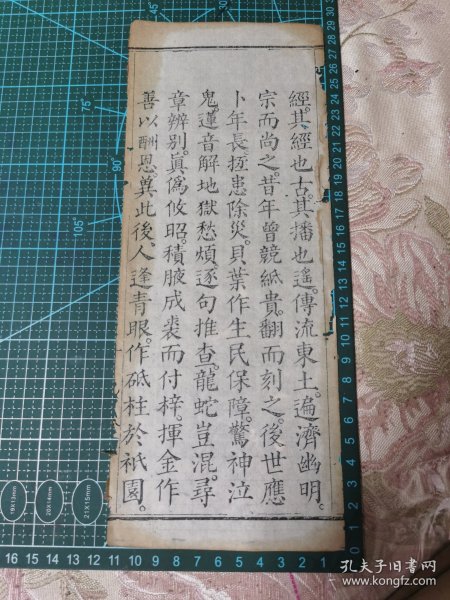 經其經也古。其播也遙。傳流東土。遍濟幽明。
宗而尚之。昔年曾競紙貴。翻而刻之。後世應
卜年長。拯患除災。貝葉作生民保障。驚神泣
鬼。蓮音解地獄愁煩。逐句推查。龍蛇豈混。尋
章辨別。眞僞攸昭。積腋成裘而付梓。揮金作
善以酬恩。冀此後人。逢青眼。作砥柱於祇園。
孔夫子旧书网
www.kongfz.com